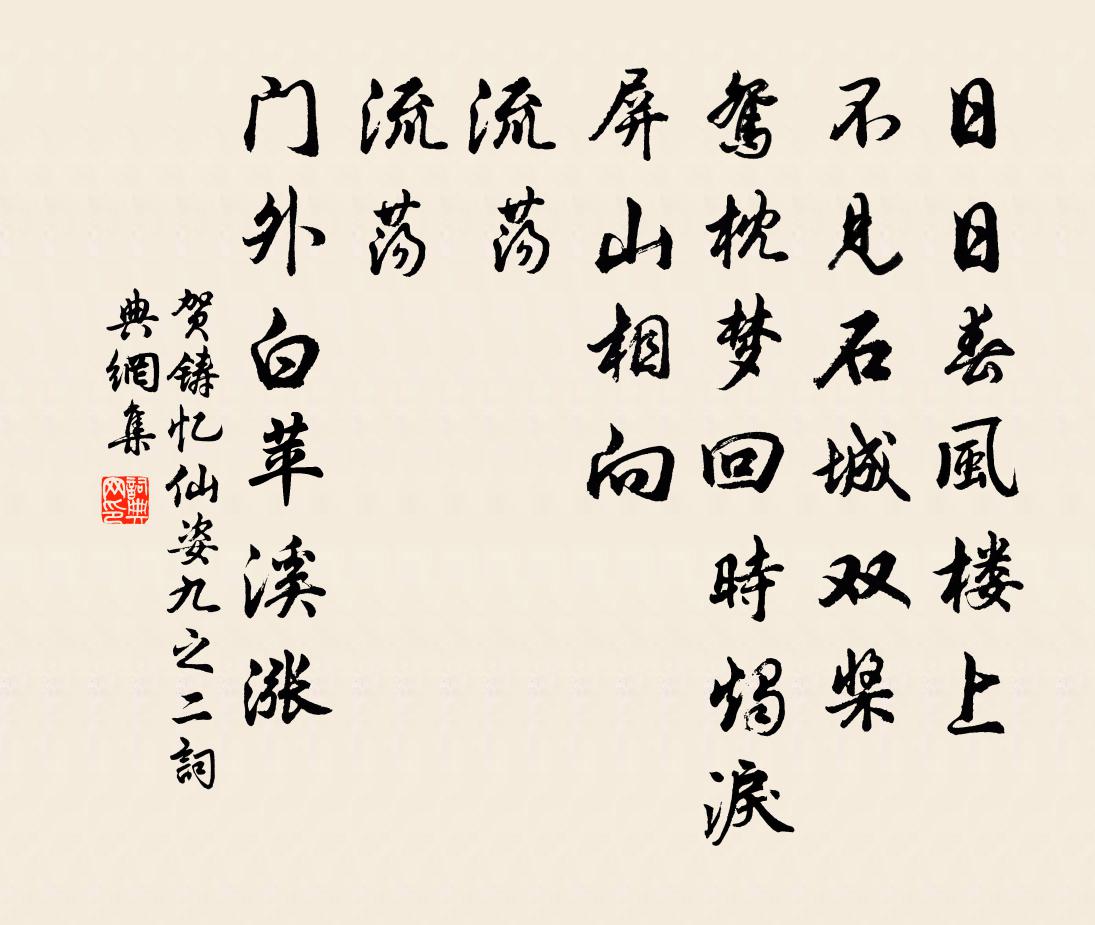 日日春風楼上
不见石城双桨
鸳枕梦回時烛淚
屏山相向
流荡
流荡
门外白苹溪涨
贺鋳忆仙姿九之二詞
典網集
詞典网印